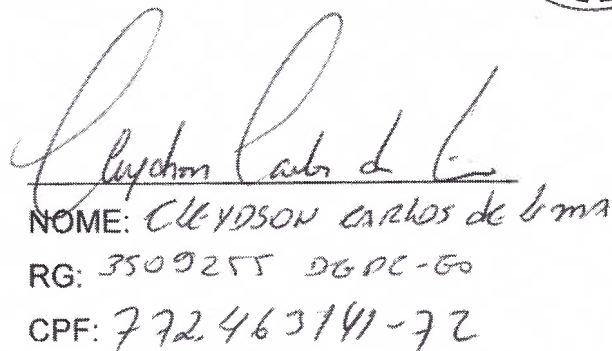 Cleydson Carlos de Lima
NOME: CLEYDSON CARLOS de Lima
RG: 3509255 DGPC-GO
CPF: 772.463141-72